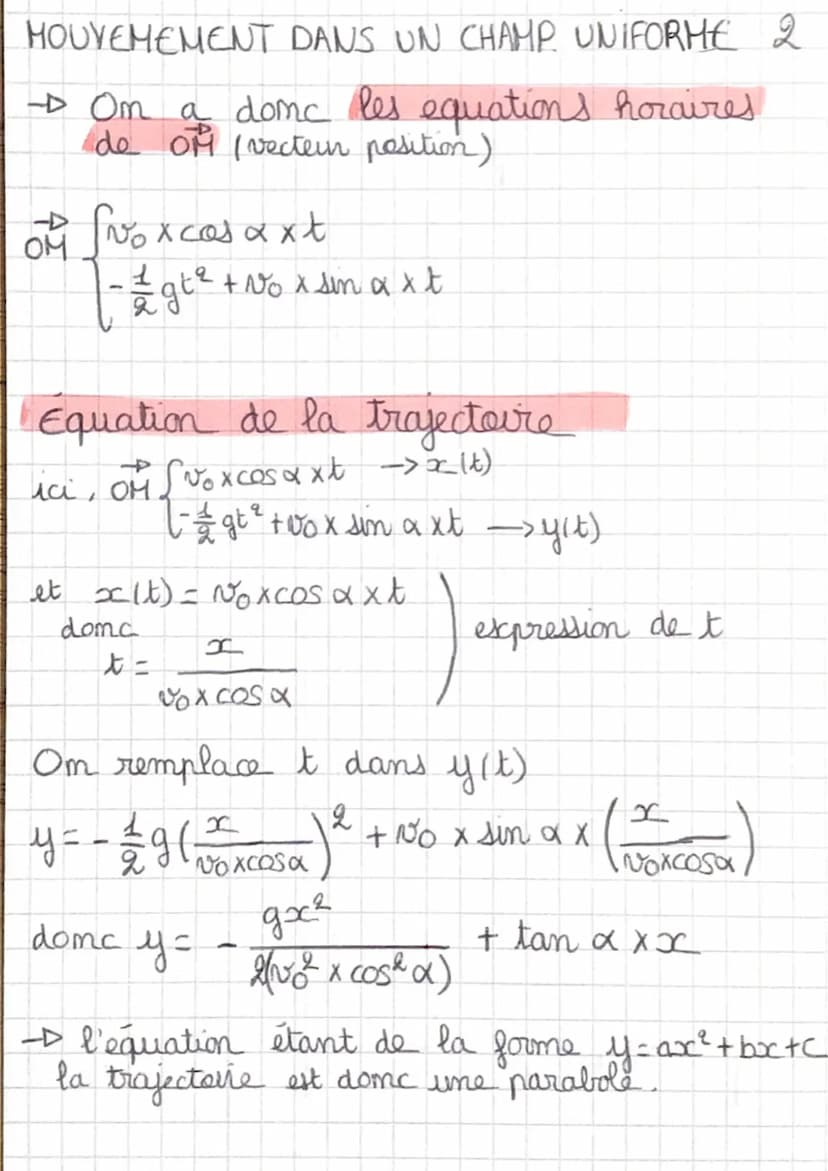 MOUVEMEMENT DANS UN CHAMP UNIFORME 2
→ On a donc les equations horaires
de OM→ (vecteur position)
OM→ { v₀ × cos α × t
-1/2 gt² + v₀ × sin α × t
Equation de la trajectoire
ici, OM→ { v₀ × cos α × t → x(t)
-1/2 gt² + v₀ × sin α × t → y(t)
et x(t) = v₀ × cos α × t
donc
t = x / (v₀ × cos α) ) expression de t
On remplace t dans y(t)
y = - 1/2 g (x / (v₀ × cos α))² + v₀ × sin α × (x / (v₀ × cos α))
donc y = - gx² / 2(v₀² × cos² α) + tan α × x
→ l'équation étant de la forme y = ax² + bx + c
la trajectoire est donc une parabole.